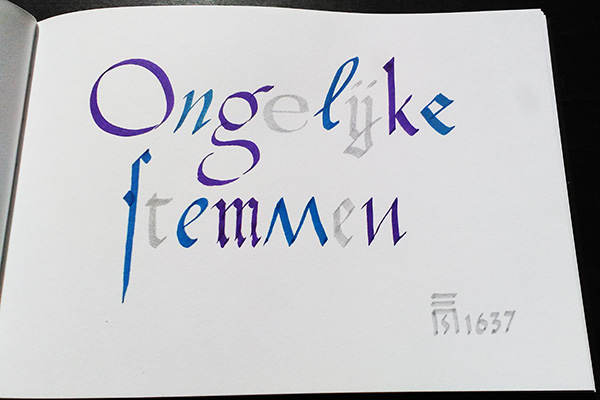 Ongelijke
ſtemmen
1637